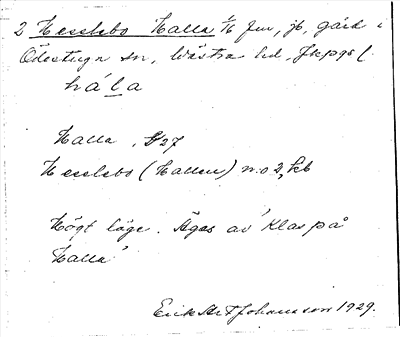 2 Hesslebo Halla 1/16 fm, jb, gård i
Ödestugu sn, Västra hd, Jkpgs l.
hála
Halla, 827
Hesslebo (Hallen) n:o 2, kb
Högt läge. Äges av "Klas på
Halla"
Erik Johansson 1929.